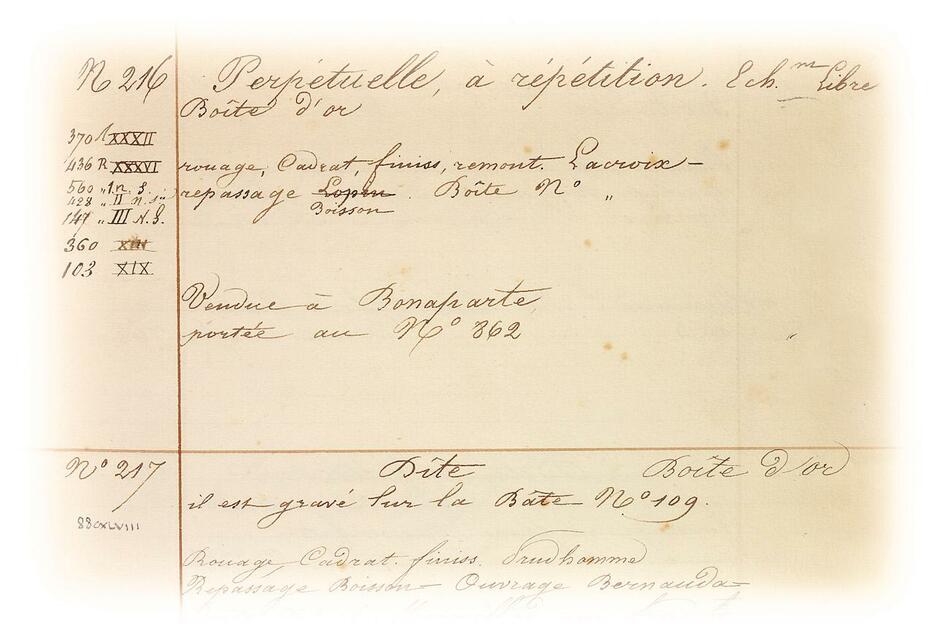 N 216 Perpétuelle, à répétition. Ech.nt Libre
Boîte d'or
370 XXXII
436 R XXXVI rouage, Cadrat, finiss, remont. Lacroix –
560 „ I n. S. repassage Lopin . Boîte N° „
Boisson
428 „ II n.
147 „ III N. S.
360 XIII
103 XIX
Vendue à Bonaparte,
portée au N° 862
N° 217 Dite Boîte d'or
il est gravé sur la Bâte N° 109.
880 XLVIII
Rouage Cadrat. finiss. Prudhomme
Repassage Boisson – Ouvrage Bernauda –